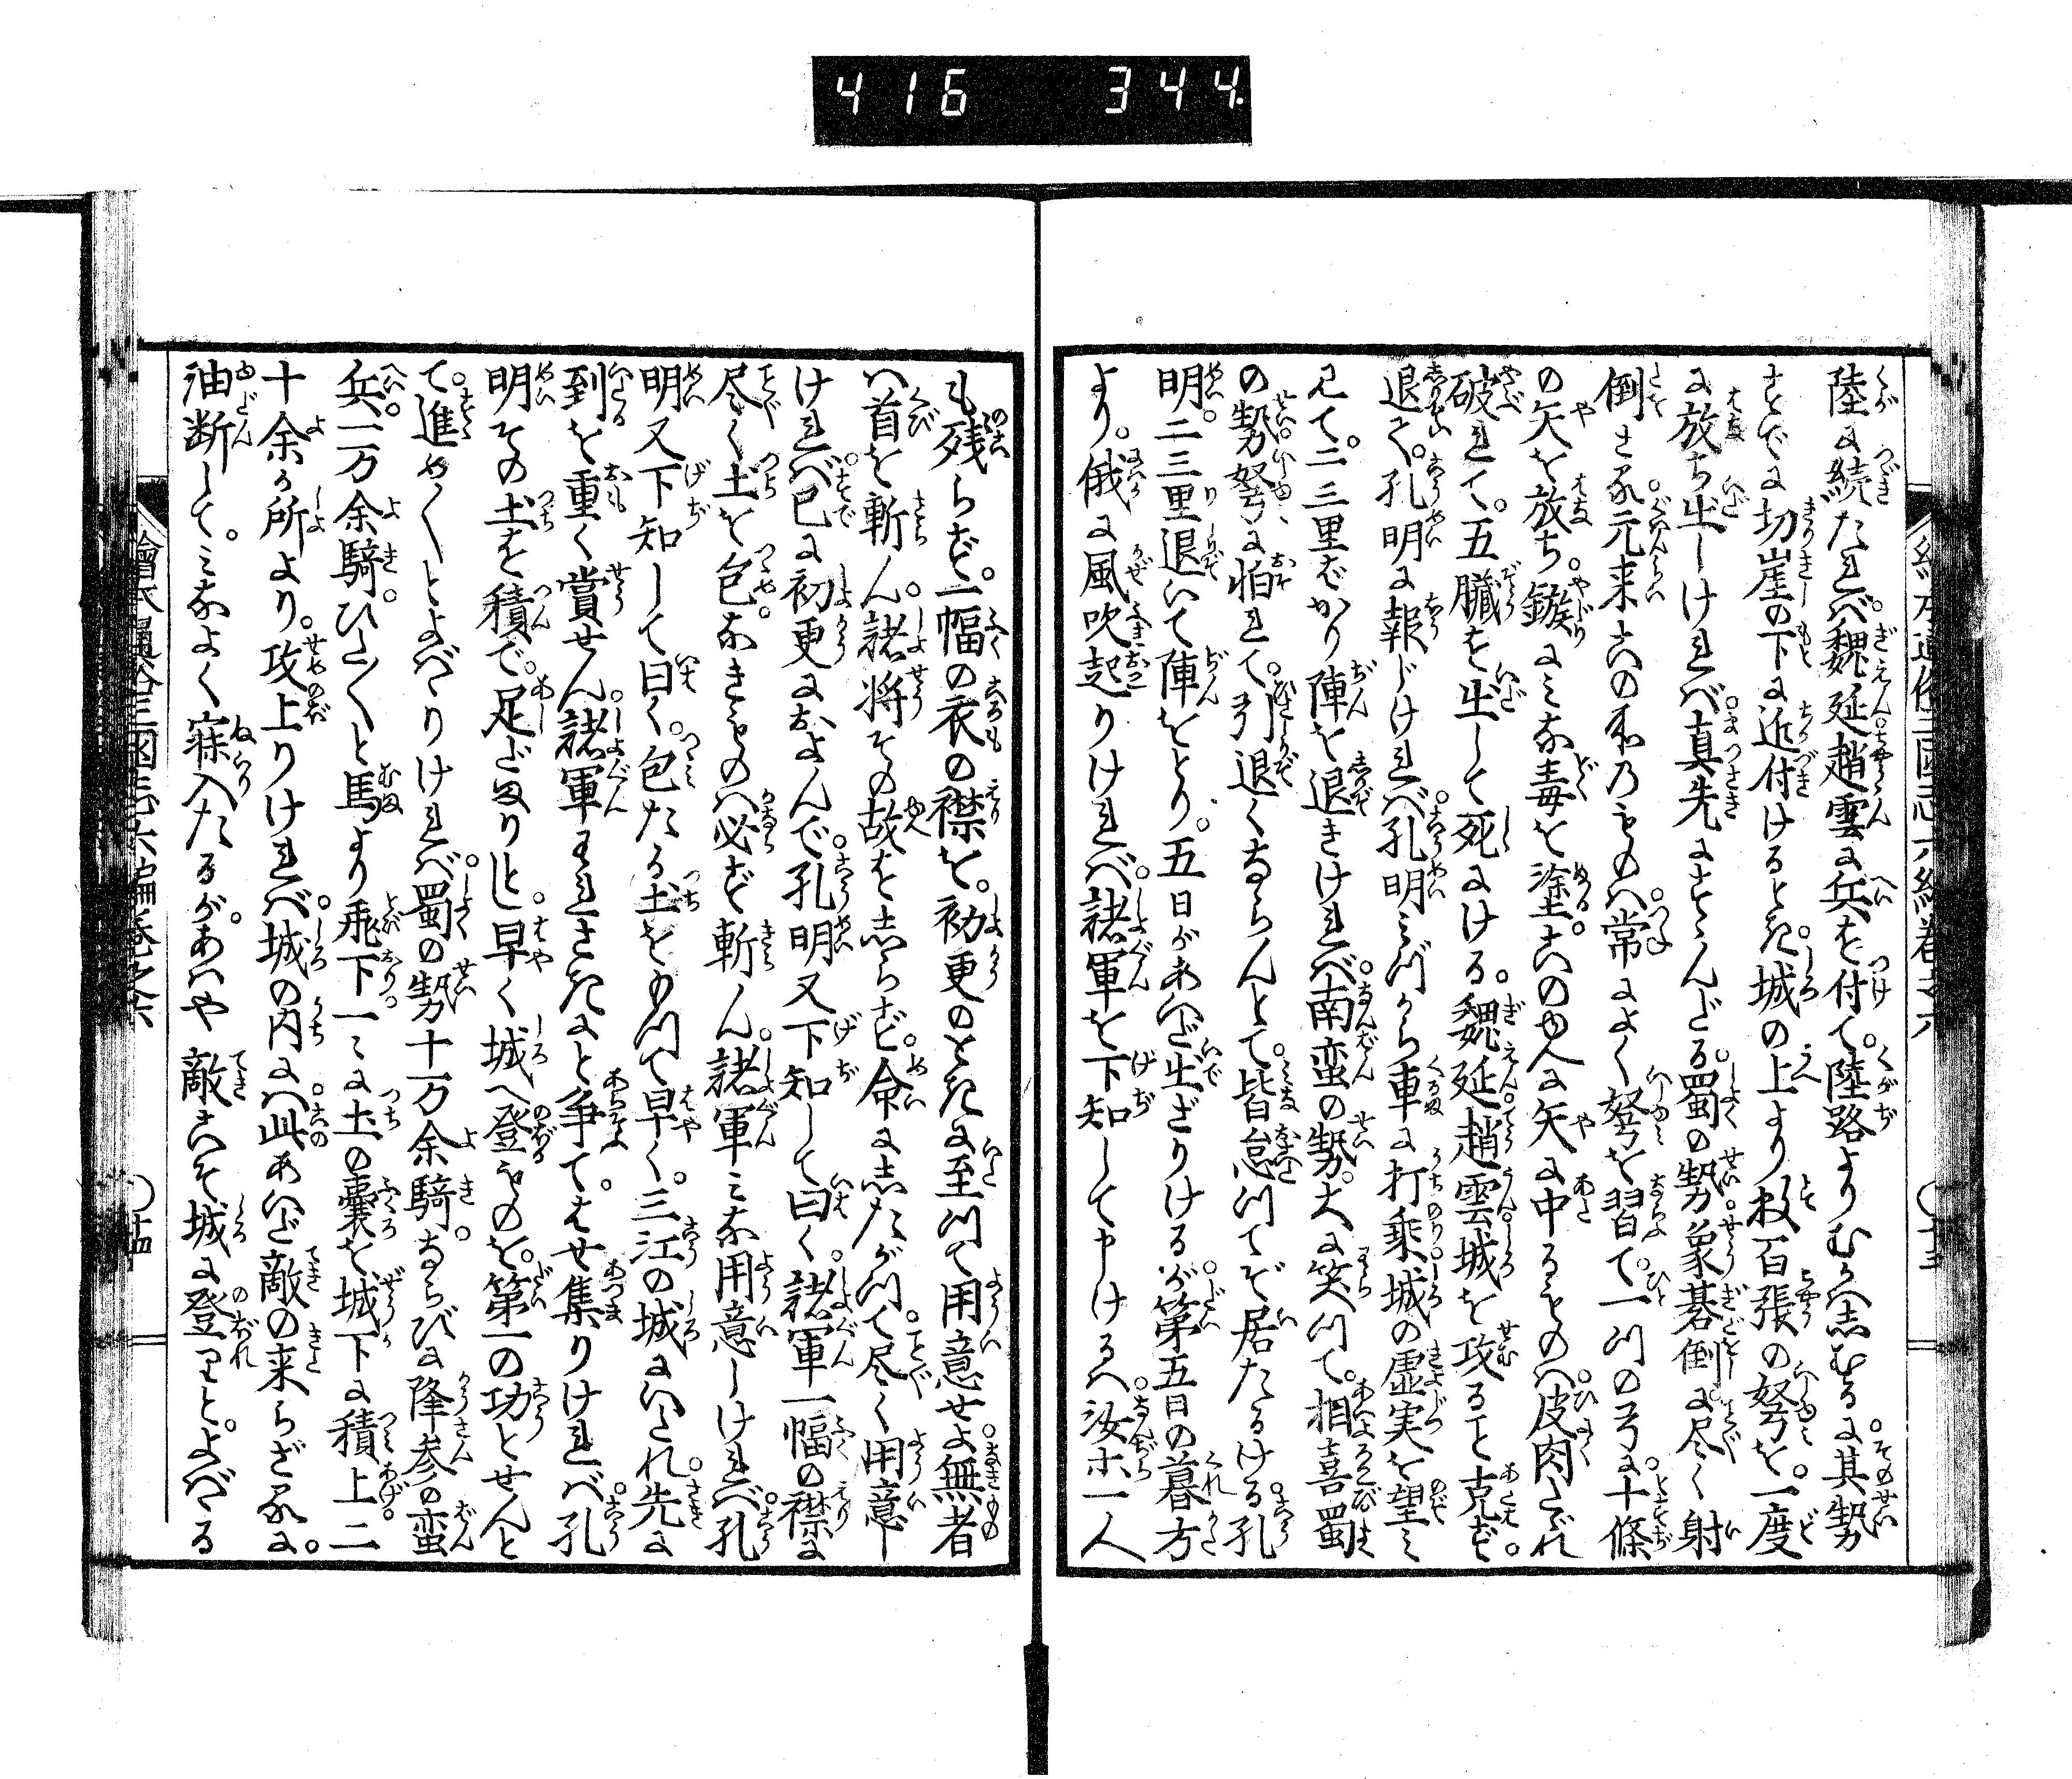 416 344
陸に続たれば。魏延。趙雲に兵を付て。陸路よりむかハしむるに。其勢
すでに切崖の下に近付けるとき。城の上より数百張の弩を。一度
に放ち出しけれバ。真先にすゝんだる。蜀の勢。象碁倒に尽く射
倒さる。元来この州のものハ。常によく弩を習て。一ツの弓に十條
の矢を放ち。鏃にみな毒を塗。この故に矢に中るものハ。皮肉たゞれ
破れて。五臓を出して死にける。魏延。趙雲城を攻ること克ず。
退て。孔明に報じけれバ。孔明みづから車に打乗。城の虚実を望み
見て。二三里ばかり陣を退きけれバ。南蛮の勢。大に笑ツて。相喜蜀
の勢。弩に怕れて。引退くならんとて。皆怠ツてぞ居たるける。孔
明。二三里退いて陣をとり。五日があいだ出ざりけるが。第五日の暮方
より。俄に風吹起りけれバ。諸軍を下知して申けるハ。汝ホ一人
も残らず。一幅の衣の襟を。初更のときに至ツて用意せよ。無者
ハ首を斬ん。諸将その故をしらず。命にしたがツて。尽く用意し
けれバ。已に初更におよんで。孔明又下知して曰く。諸軍一幅の襟に
尽く土を包。なきものハ必ず斬ん。諸軍みな用意しけれバ。孔
明又下知して曰く。包たる土をもツて早く。三江の城にいたれ。先に
到を重く賞せん。諸軍われさきにと争て。はせ集りけれバ。孔
明その土を積で。足だまりとし。早く城へ登ものを。第一の功とせんと
て。進めくとよバゝりけれバ。蜀の勢十万余騎。ならびに降参の蛮
兵。一万余騎。ひたくと馬より飛下。一ミに土の嚢を。城下に積上。二
十余ケ所より。攻上りけれバ。城の内にハ。此あいだ敵の来らざるに。
油断して。みなよく寐入たるが。あハや敵こそ城に登れりと。よバゝる
繪本通俗三国志六編巻之六